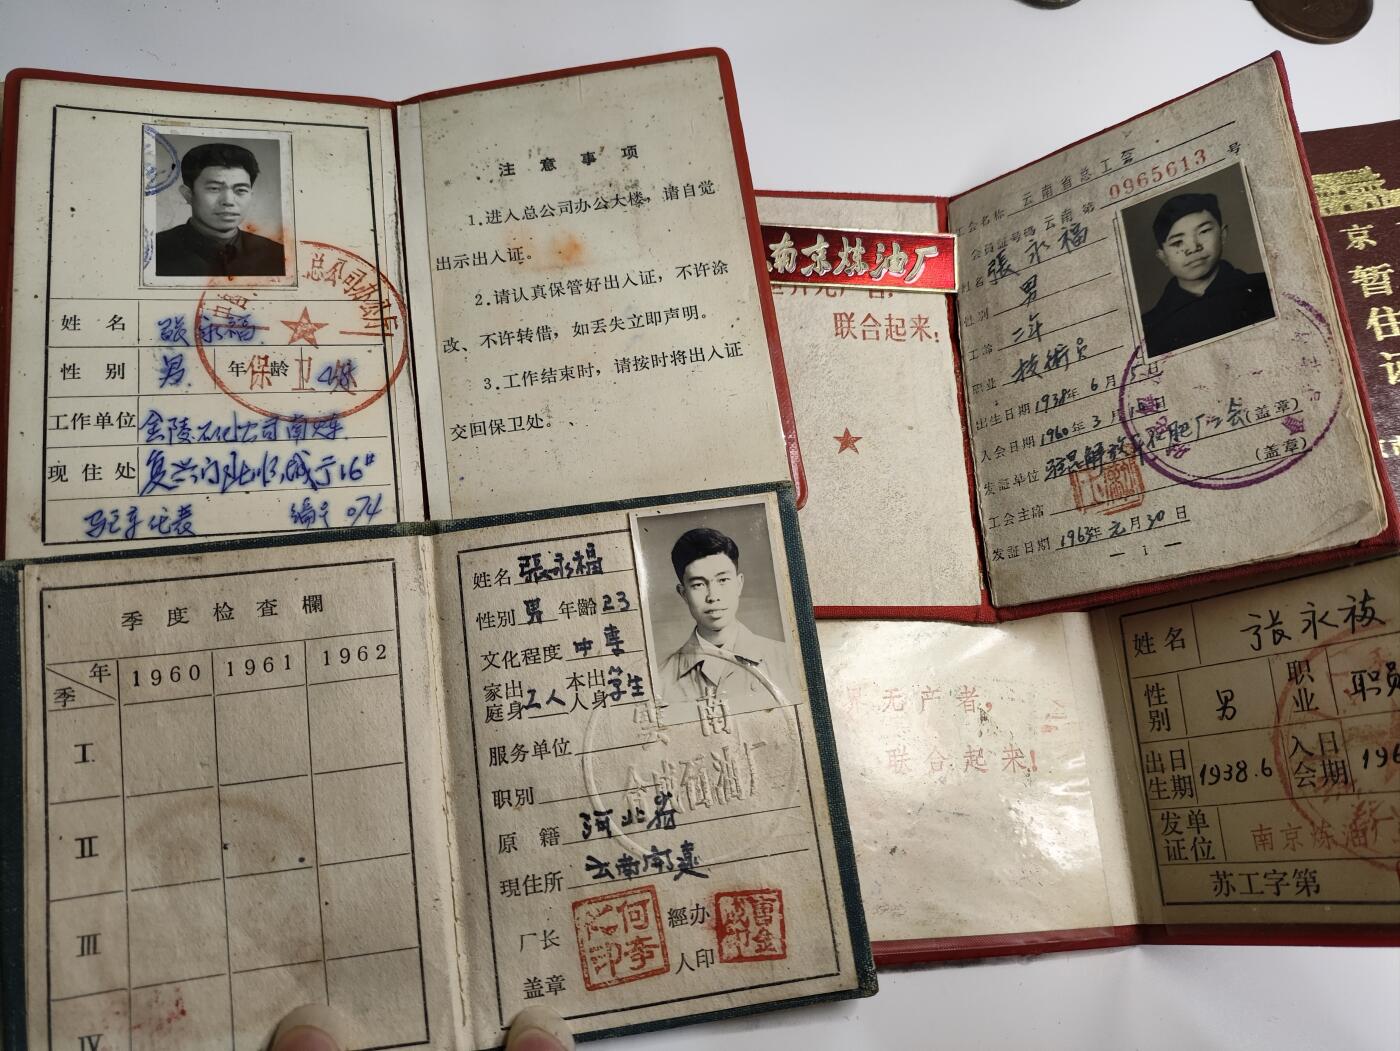 姓名 张永福
性别 男 年龄 48
工作单位 金陵石化公司南炼
现住处 复兴门北顺城街16#
驻京代表 编号 074
总公司办公厅
保卫处
注意事项
1.进入总公司办公大楼，请自觉
出示出入证。
2.请认真保管好出入证，不许涂
改、不许转借，如丢失立即声明。
3.工作结束时，请按时将出入证
交回保卫处。
南京炼油厂
联合起来！
工会名称 云南省总工会
会员证号码 云南第 0965613 号
姓名 張永福
性别 男
工龄 二年
职业 技術员
出生日期 1938年6月5日
入会日期 1960年3月1日
发証单位 (盖章)
工会主席 (盖章)
发証日期 1963年元月30日
— 1 —
季度检查欄
年 1960 1961 1962
季
I
II
III
IV
姓名 張永福
性别 男 年齡 23
文化程度 中專
家庭出身 工人 本人出身 学生
服务单位
职别
原籍 河北省
現住所 云南
厂长
盖章
經办
人印
雲南
合成石油厂
界无产者，
联合起来！
姓名 张永福
性别 男 职业 职员
出生日期 1938.6 入会日期 196
发证单位 南京炼油
苏工字第
京
暂
住